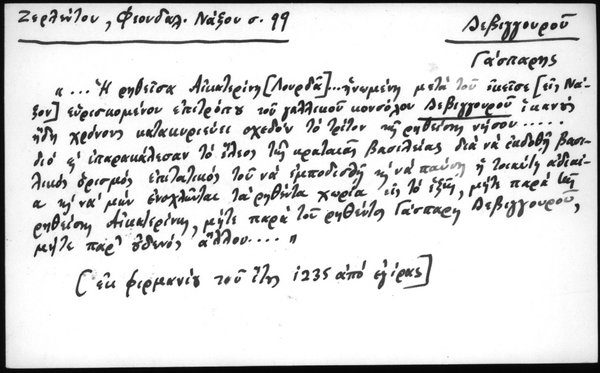 Ζερλέντου, Φεουδαλ. Νάξου σ. 99
Δεβιγγουροῦ
Γάσπαρης
"... Ἡ ρηθεῖσα Αἰκατερίνη [Λουρδᾶ]... ἡνωμένη μετά τοῦ ἐκεῖσε [εἰς Νά-
ξον] εὑρισκομένου ἐπιτρόπου τοῦ γαλλικοῦ κονσόλου Δεβιγγουροῦ ἱκανούς
ἤδη χρόνους κατακυριεύει σχεδόν τό τρίτον τῆς ρηθείσης νήσου.....
διό κ' ἐπαρακάλεσαν τό ἔλεος τῆς κραταιᾶς βασιλείας διά νά ἐκδοθῇ βασι-
λικός ὁρισμός ἐπιτατικός τοῦ νά ἐμποδισθῇ κ' νά παύσῃ ἡ τοιαύτη ἀδικί-
α κ' νά μήν ἐνοχλῶνται τά ρηθέντα χωρία εἰς τό ἑξῆς, μήτε παρά τῆς
ρηθείσης Αἰκατερίνης, μήτε παρά τοῦ ρηθέντος Γάσπαρη Δεβιγγουροῦ,
μήτε παρ' οὐδενός ἄλλου...."
[ἐκ φιρμανίου τοῦ ἔτους 1235 ἀπό ἐγίρας]